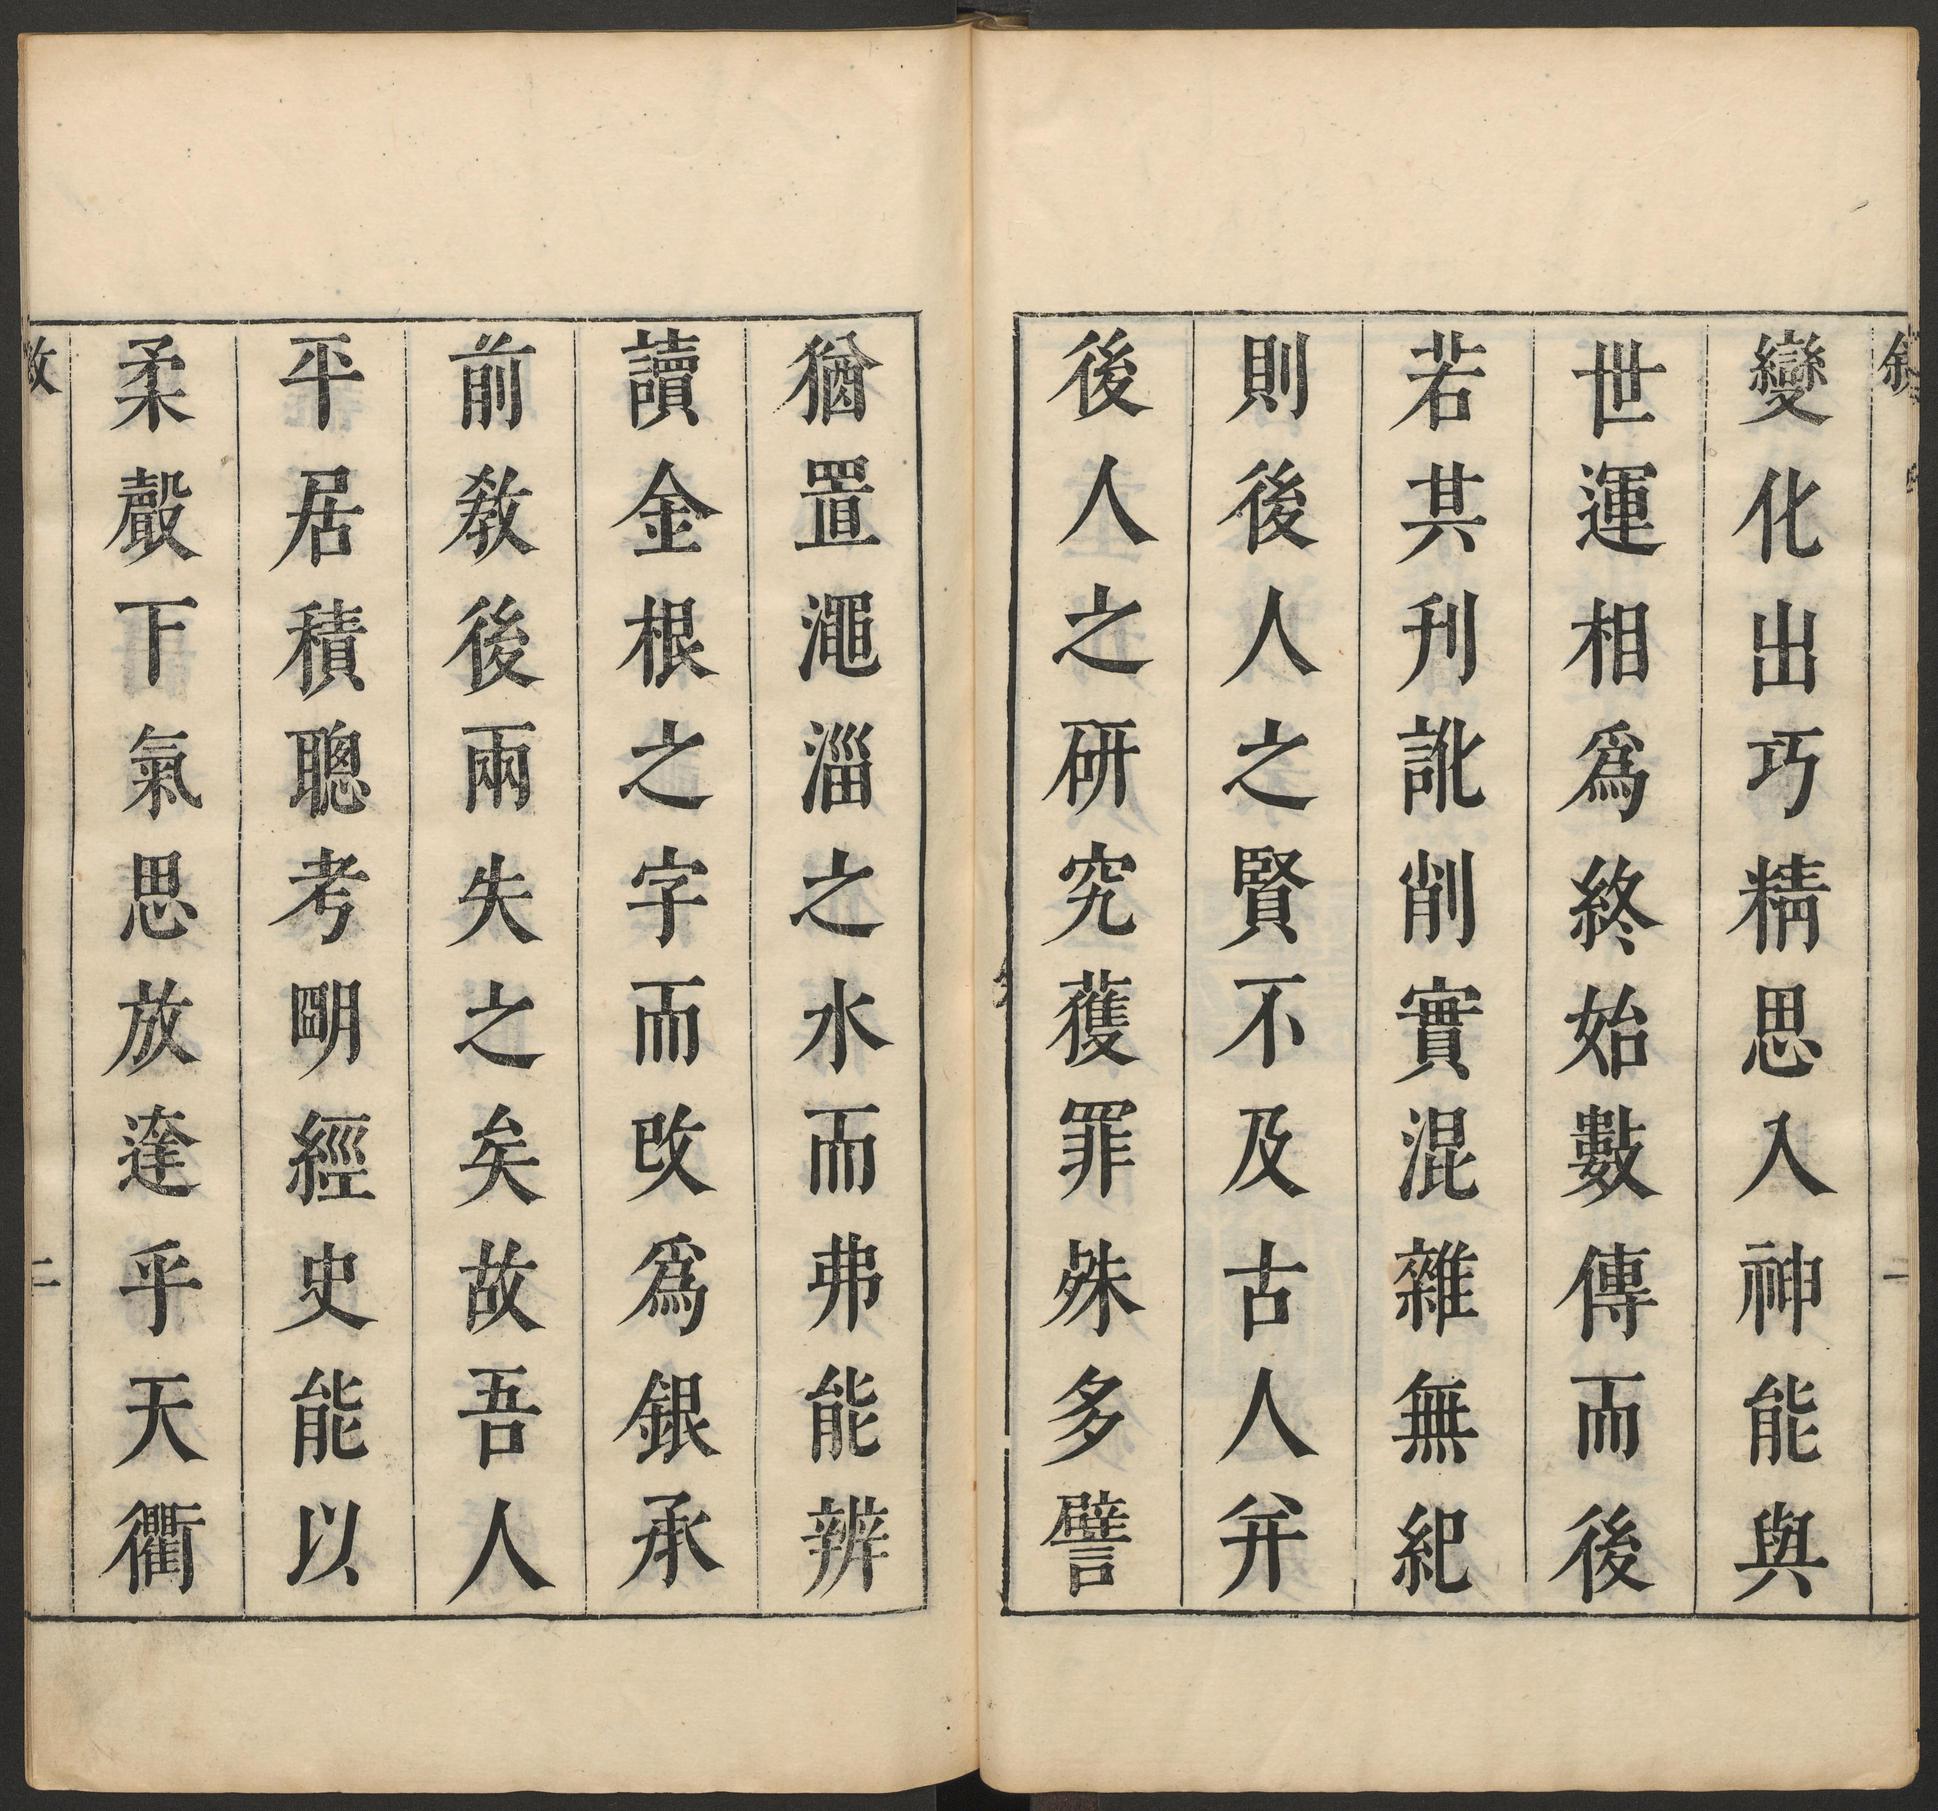 變化出巧精思入神能與
世運相爲終始數傳而後
若其刋訛削實混雜無紀
則後人之賢不及古人幷
後人之研究獲罪殊多譬
猶置澠淄之水而弗能辨
讀金根之字而改爲銀承
前教後兩失之矣故吾人
平居積聰考明經史能以
柔嚴下氣思放逹乎天衢
二